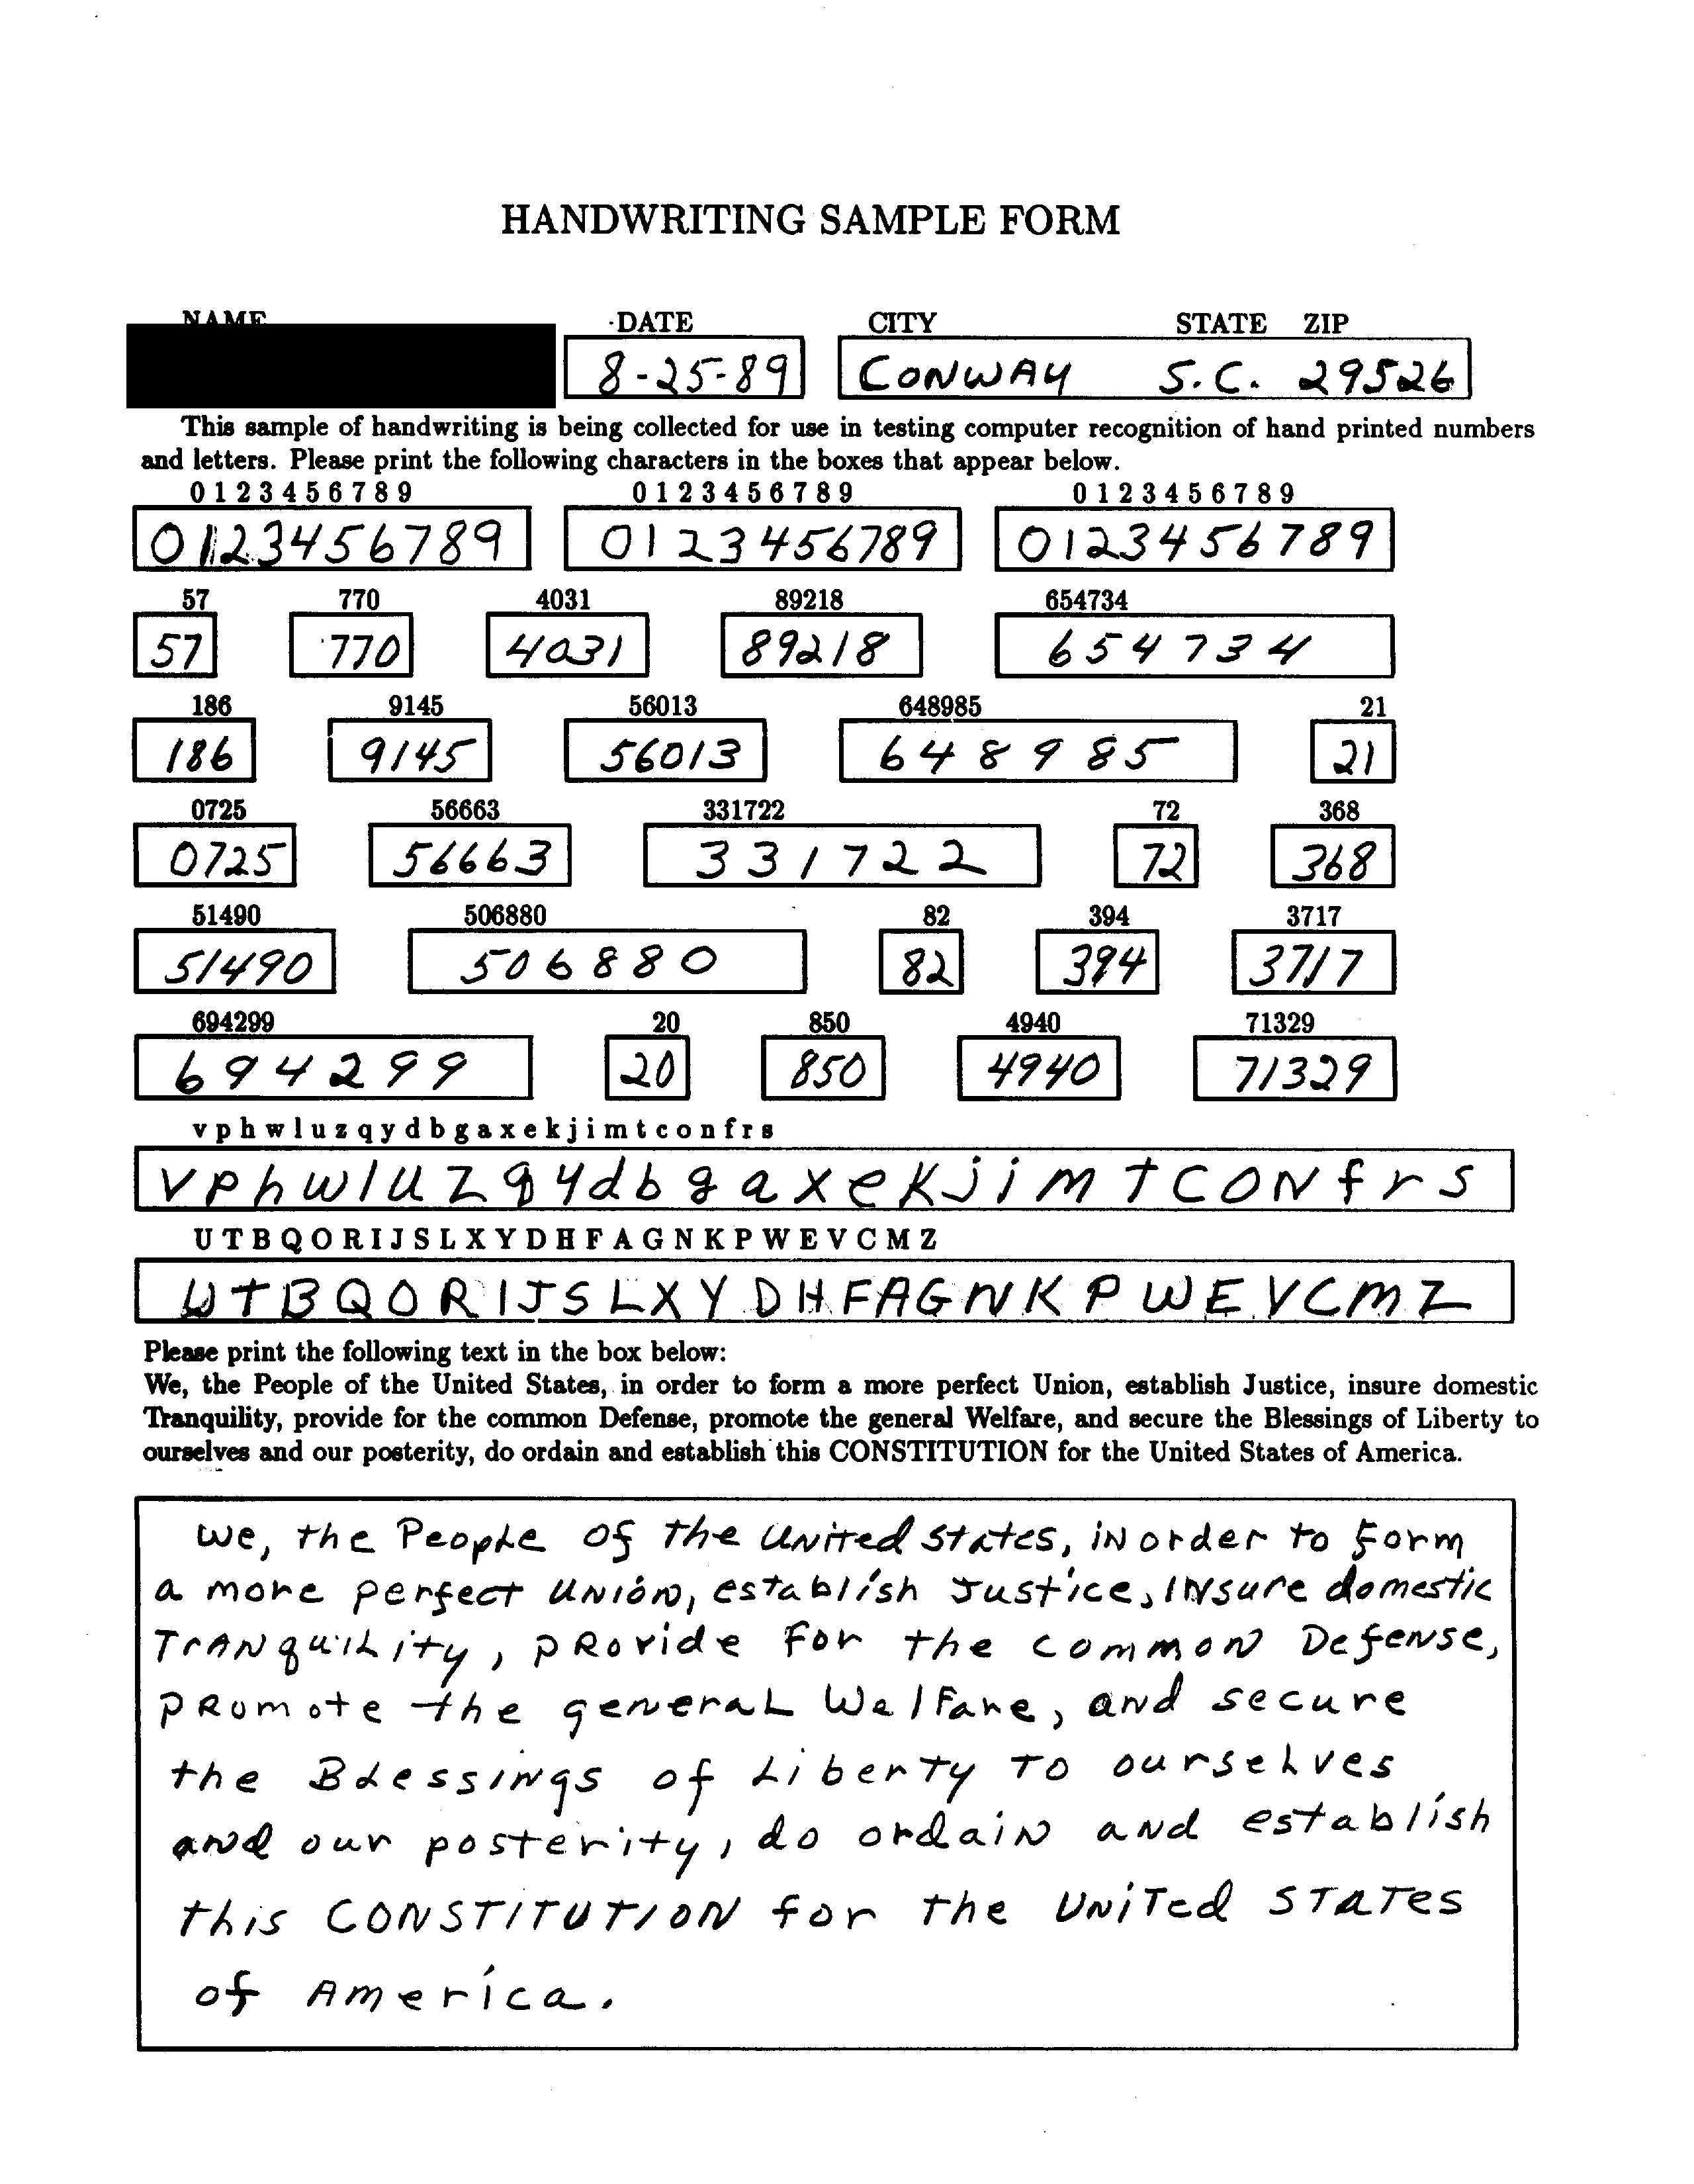 HANDWRITING SAMPLE FORM
NAME DATE CITY STATE ZIP
8-25-89 CONWAY S.C. 29526
This sample of handwriting is being collected for use in testing computer recognition of hand printed numbers
and letters. Please print the following characters in the boxes that appear below.
0 1 2 3 4 5 6 7 8 9 0 1 2 3 4 5 6 7 8 9 0 1 2 3 4 5 6 7 8 9
0123456789 0123456789 0123456789
57 770 4031 89218 654734
57 770 4031 89218 654734
186 9145 56013 648985 21
186 9145 56013 648985 21
0725 56663 331722 72 368
0725 56663 331722 72 368
51490 506880 82 394 3717
51490 506880 82 394 3717
694299 20 850 4940 71329
694299 20 850 4940 71329
v p h w l u z q y d b g a x e k j i m t c o n f r s
v p h w l u z q y d b g a x e k j i m t c o N f r s
U T B Q O R I J S L X Y D H F A G N K P W E V C M Z
U T B Q O R I J S L X Y D H F A G N K P W E V C M Z
Please print the following text in the box below:
We, the People of the United States, in order to form a more perfect Union, establish Justice, insure domestic
Tranquility, provide for the common Defense, promote the general Welfare, and secure the Blessings of Liberty to
ourselves and our posterity, do ordain and establish this CONSTITUTION for the United States of America.
We, the People of the United States, in order to form
a more perfect Union, establish Justice, insure domestic
Tranquility, provide for the common Defense,
promote the general Welfare, and secure
the Blessings of Liberty to ourselves
and our posterity, do ordain and establish
this CONSTITUTION for the United States
of America.